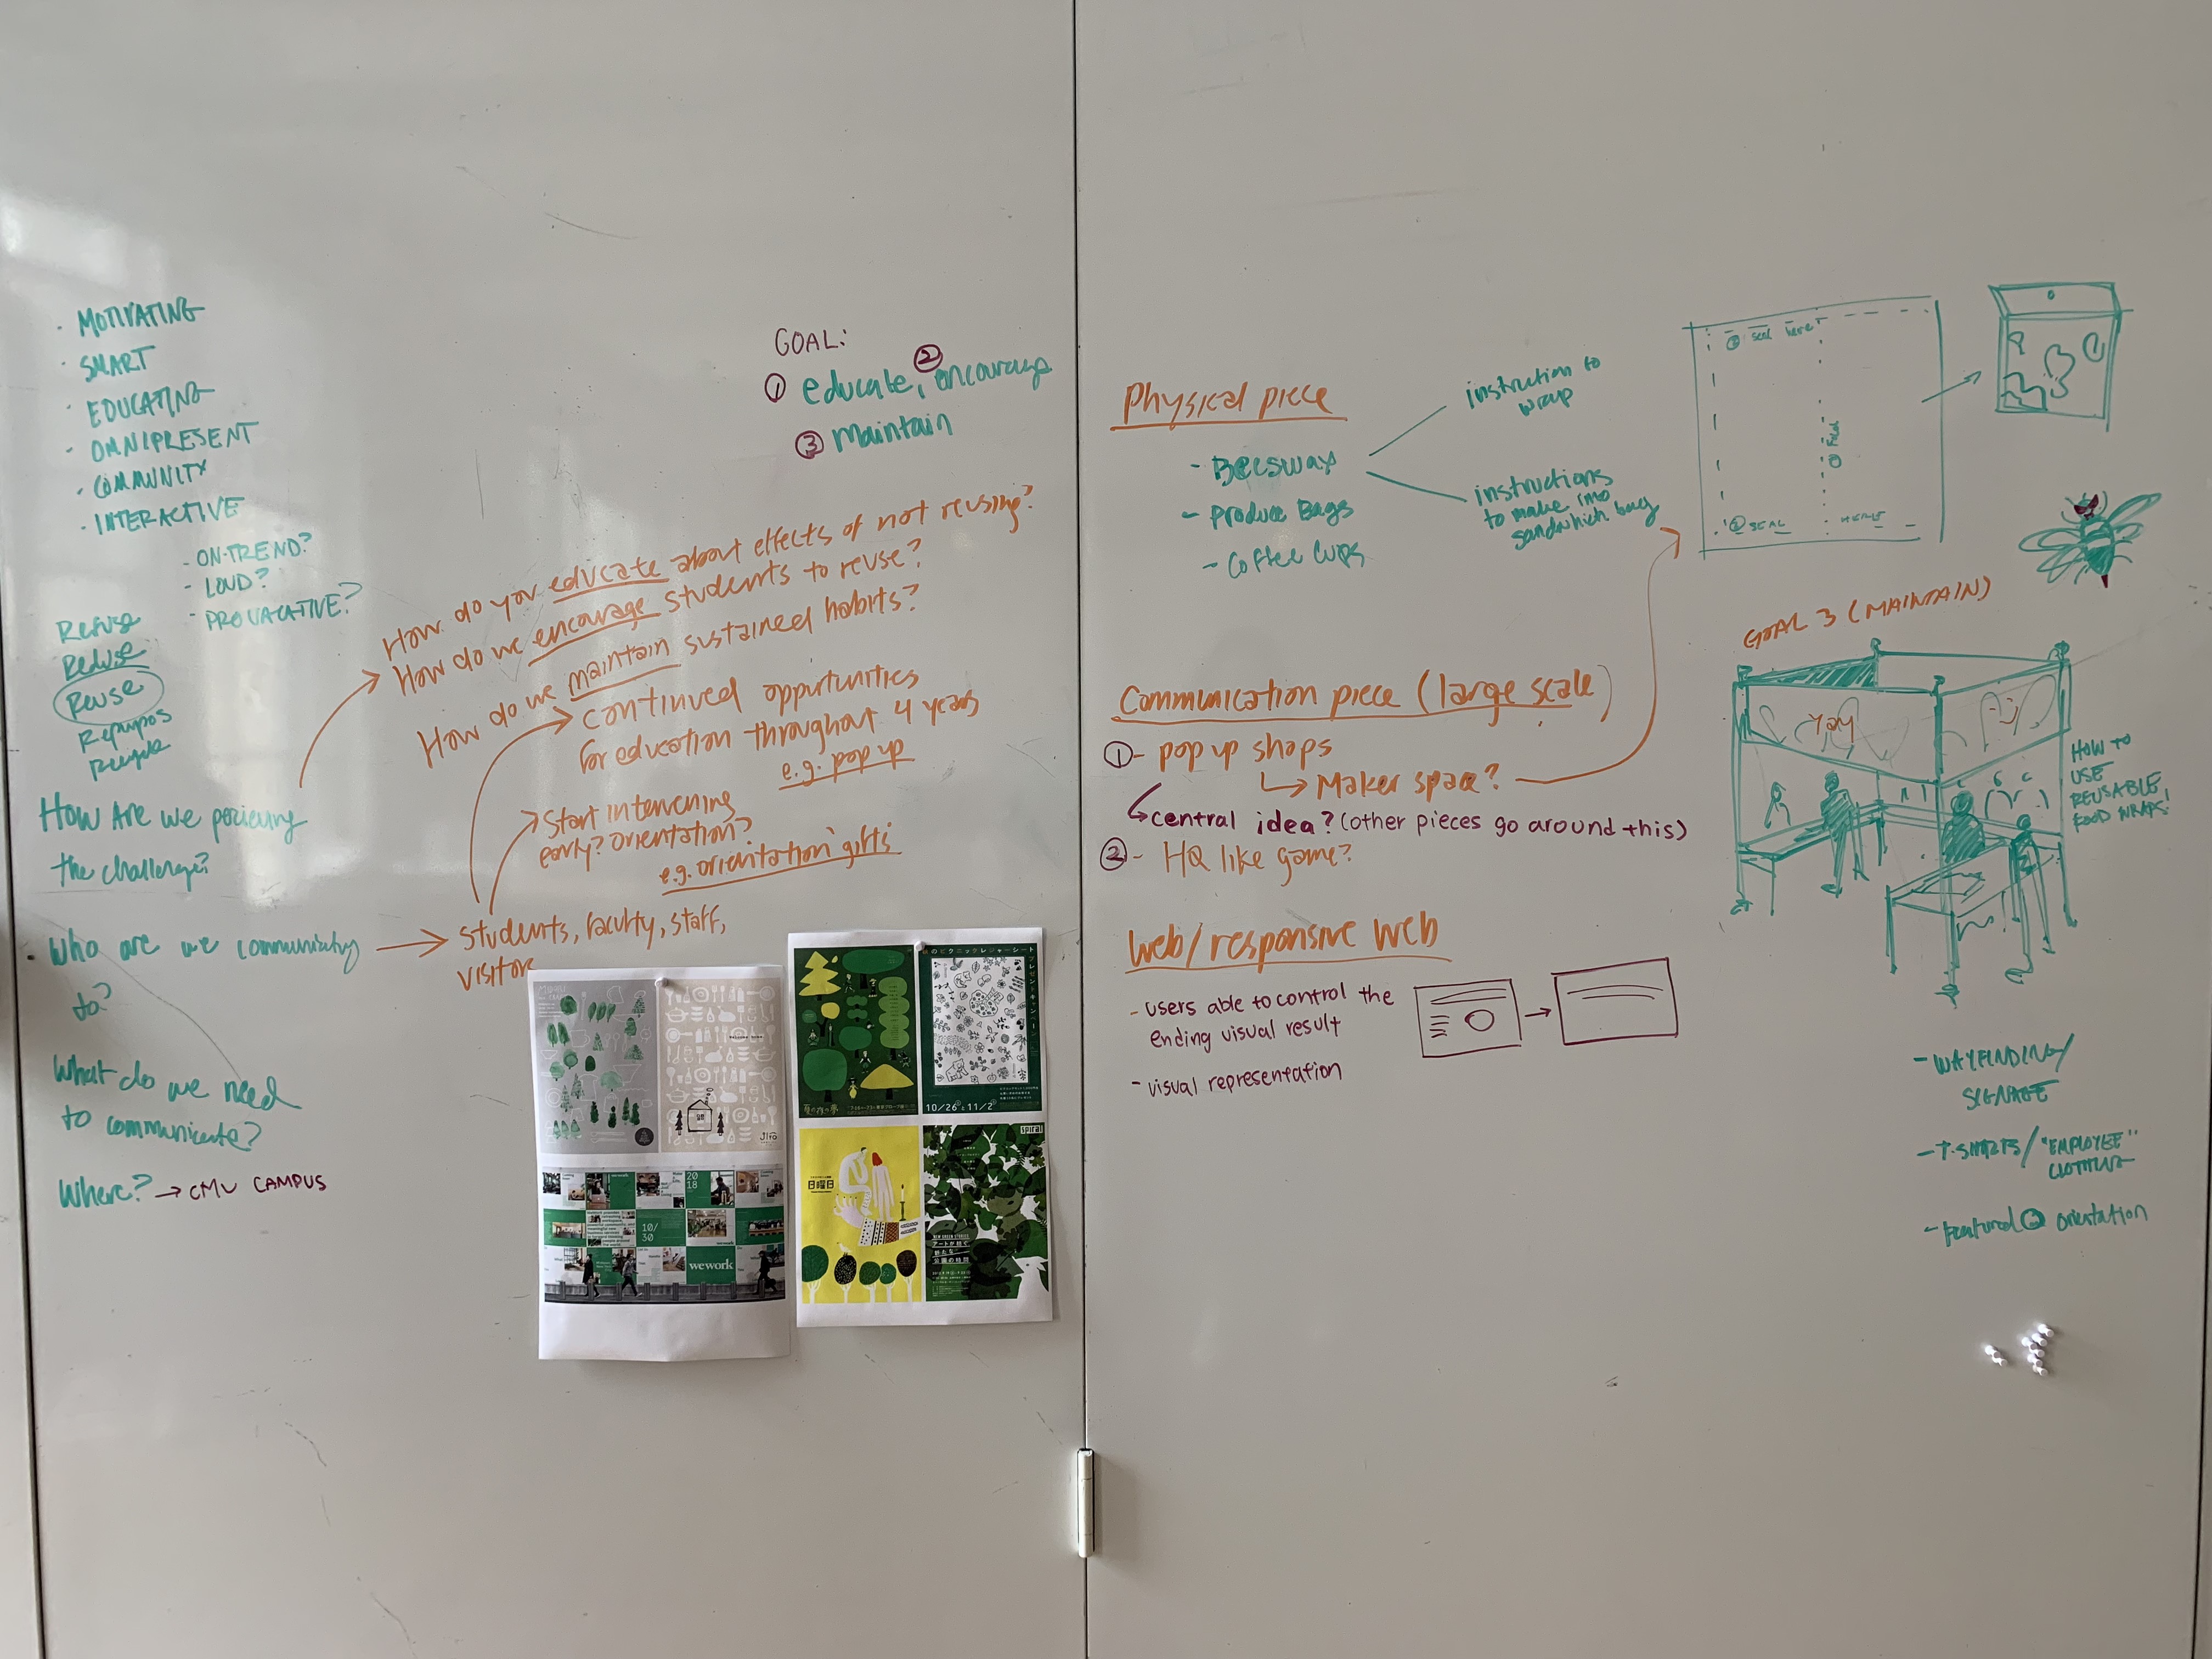 · MOTIVATING
· SMART
· EDUCATING
· OMNIPRESENT
· COMMUNITY
· INTERACTIVE
- ON-TREND?
- LOUD?
- PROVACATIVE?
Refuse
Reduse
Reuse
Repurpos
Recycle
How Are we
the challenge?
Who are we
to?
What do we need
to communicate?
Where? → CMU CAMPUS
GOAL:
① educate, ② encourage
③ Maintain
How do you educate about effects of not reusing?
How do we encourage students to reuse?
How do we maintain sustained habits?
continued opportunities
for education throughout 4 years
e.g. pop up
Start intervening
early? Orientation?
e.g. orientation gifts
students, faculty, staff,
visitors
日曜日
10/26 11/2
spiral
NEW GREEN STORIES
アートが紡ぐ
新たな
公園の時間
Jiro
20
18
10/
30
wework
Physical piece
- Beeswax
- Produce Bags
- Coffee Cups
instruction to
wrap
instructions
to make into
sandwhich bag
seal here
② Fold
SEAL HERE
Communication piece (large scale)
① - pop up shops
↳ Maker space?
↳ central idea? (other pieces go around this)
② - HQ like game?
Web/responsive web
- users able to control the
ending visual result
- visual representation
GOAL 3 (MAINTAIN)
Yay
HOW TO
USE
REUSABLE
FOOD WRAPS!
- WAYFINDING/
SIGNAGE
- T-SHIRTS/"EMPLOYEE"
CLOTHING
- Featured @ orientation